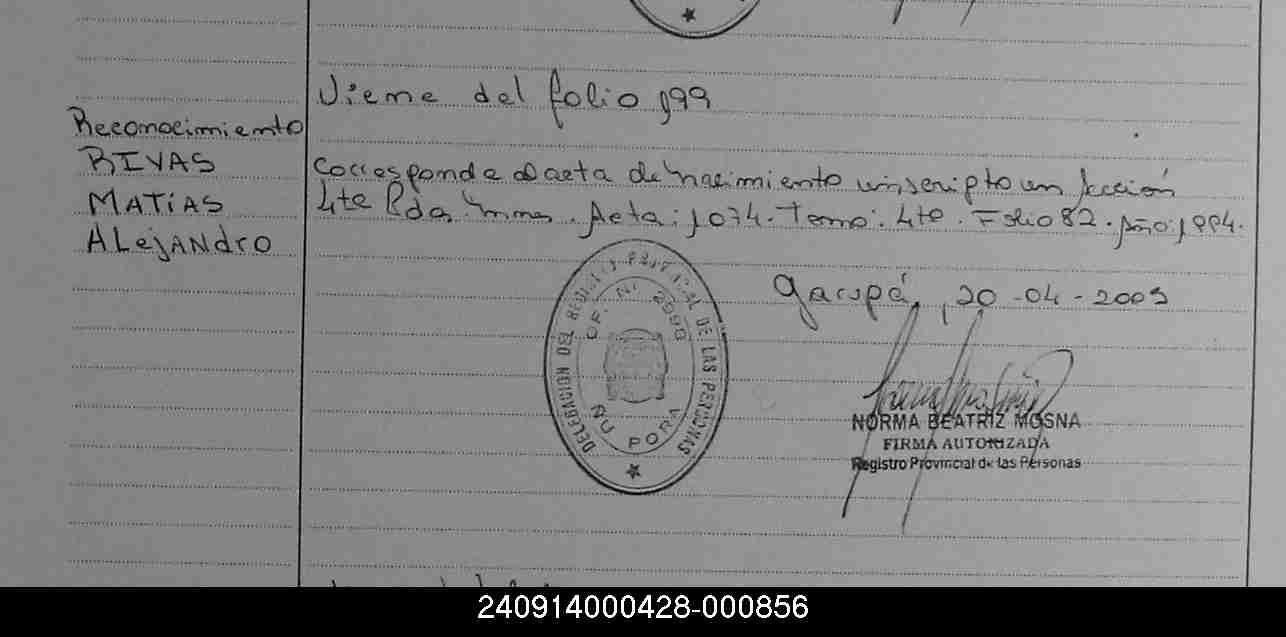 Viene del folio 199
Reconocimiento
RIVAS
MATÍAS
ALeJANdro
Corresponde a acta de nacimiento inscripto en sección
4ta Pdas. Acta: 1074. Tomo: 4to. Folio 82. Año: 1994.
Garupá, 20-04-2005
DELEGACION DEL REGISTRO PROVINCIAL DE LAS PERSONAS
OF. Nº 2990
ÑU PORA
NORMA BEATRIZ MOSNA
FIRMA AUTORIZADA
Registro Provincial de las Personas
240914000428-000856